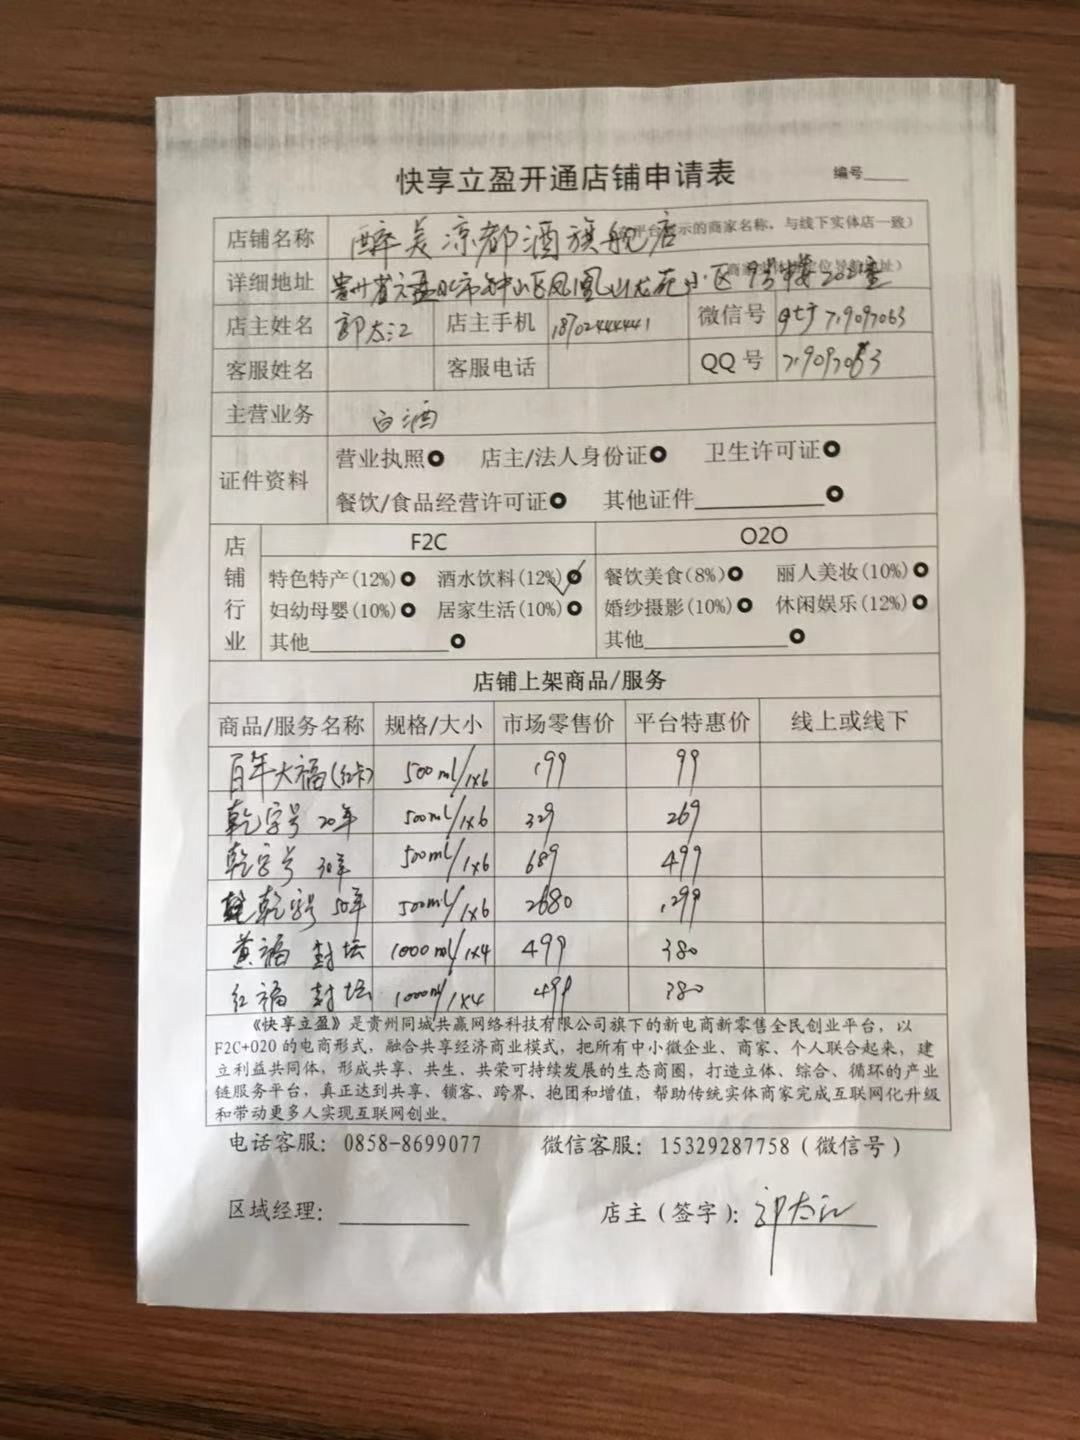 快享立盈开通店铺申请表 编号____
店铺名称 醉美凉都酒旗舰店 示的商家名称，与线下实体店一致）
详细地址 贵州省六盘水市钟山区凤凰山龙苑小区9号楼202室
店主姓名 郭太江 店主手机 18702444441 微信号 719097063
客服姓名 客服电话 QQ号 719097063
主营业务 白酒
证件资料 营业执照 店主/法人身份证 卫生许可证
餐饮/食品经营许可证 其他证件__________
店铺行业 F2C O2O
特色特产(12%) 酒水饮料(12%)✓ 餐饮美食(8%) 丽人美妆(10%)
妇幼母婴(10%) 居家生活(10%) 婚纱摄影(10%) 休闲娱乐(12%)
其他____________ 其他____________
店铺上架商品/服务
商品/服务名称 规格/大小 市场零售价 平台特惠价 线上或线下
百年大福(红卡) 500ml/1x6 199 99
乾字号 20年 500ml/1x6 329 269
乾字号 30年 500ml/1x6 689 499
乾字号 50年 500ml/1x6 2680 1299
黄福 封坛 1000ml/1x4 499 380
红福 封坛 1000ml/1x4 499 380
《快享立盈》是贵州同城共赢网络科技有限公司旗下的新电商新零售全民创业平台，以
F2C+O2O 的电商形式，融合共享经济商业模式，把所有中小微企业、商家、个人联合起来，建
立利益共同体，形成共享、共生、共荣可持续发展的生态商圈，打造立体、综合、循环的产业
链服务平台，真正达到共享、锁客、跨界、抱团和增值，帮助传统实体商家完成互联网化升级
和带动更多人实现互联网创业。
电话客服：0858-8699077 微信客服：15329287758（微信号）
区域经理：__________ 店主（签字）：郭太江